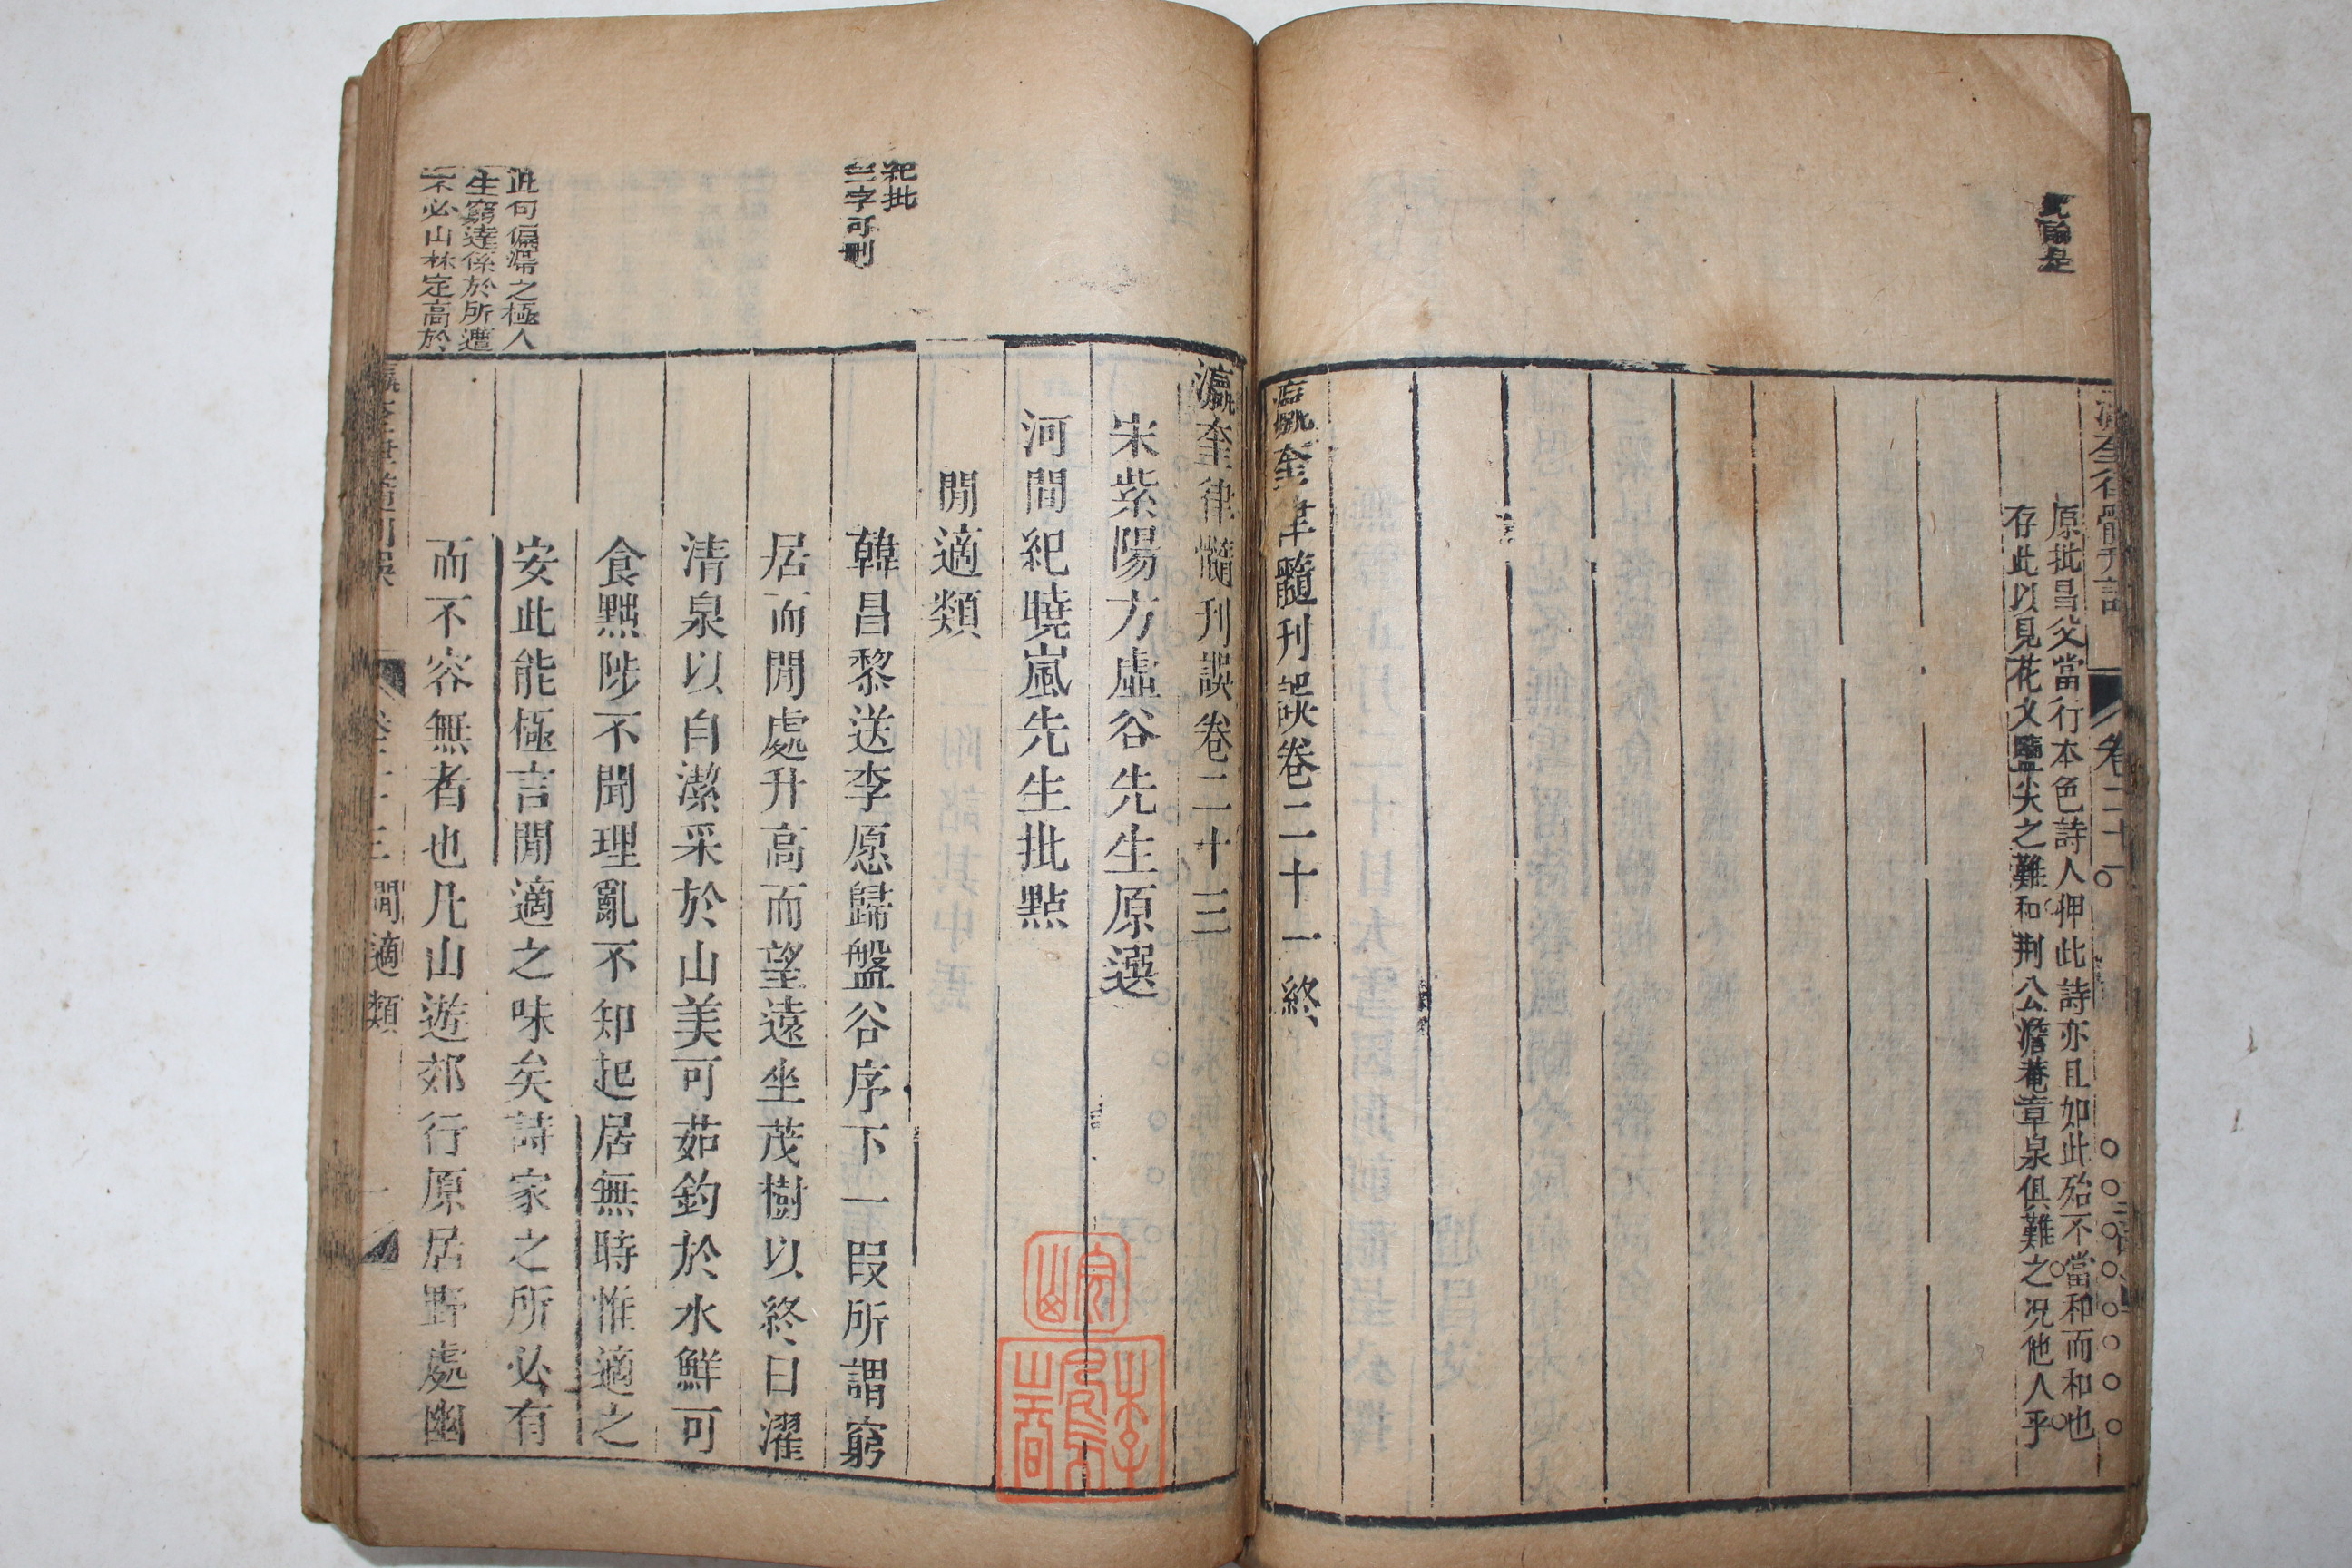 原批昌父當行本色詩人押此詩亦且如此殆不當和而和也
存此以見花乂鹽尖之難和荆公澹菴章泉俱難之况他人乎
瀛奎律髓刊誤卷二十一終
瀛奎律髓刊誤卷二十三
宋紫陽方虛谷先生原選
河間紀曉嵐先生批點
閒適類
紀批
三字可刪
韓昌黎送李愿歸盤谷序下一段所謂窮
居而閒處升高而望遠坐茂樹以終日濯
清泉以自潔采於山美可茹釣於水鮮可
食黜陟不聞理亂不知起居無時惟適之
安此能極言閒適之味矣詩家之所必有
而不容無者也凡山遊郊行原居野處幽
此句偏滯之極人
生窮達係於所遭
不必山林定高於
卷二十三 閒適類 一